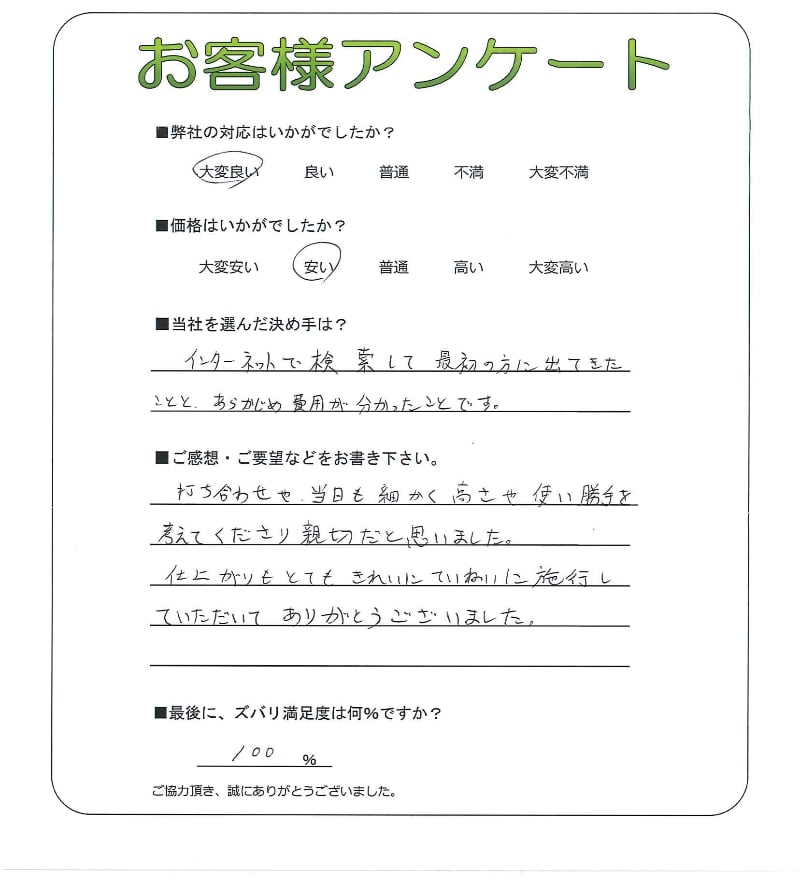 お客様アンケート
■弊社の対応はいかがでしたか？
大変良い 良い 普通 不満 大変不満
■価格はいかがでしたか？
大変安い 安い 普通 高い 大変高い
■当社を選んだ決め手は？
インターネットで検索して最初の方に出てきた
ことと、あらかじめ費用が分かったことです。
■ご感想・ご要望などをお書き下さい。
打ち合わせや、当日も細かく高さや使い勝手を
考えてくださり親切だと思いました。
仕上がりもとてもきれいにていねいに施行し
ていただいてありがとうございました。
■最後に、ズバリ満足度は何％ですか？
100 ％
ご協力頂き、誠にありがとうございました。